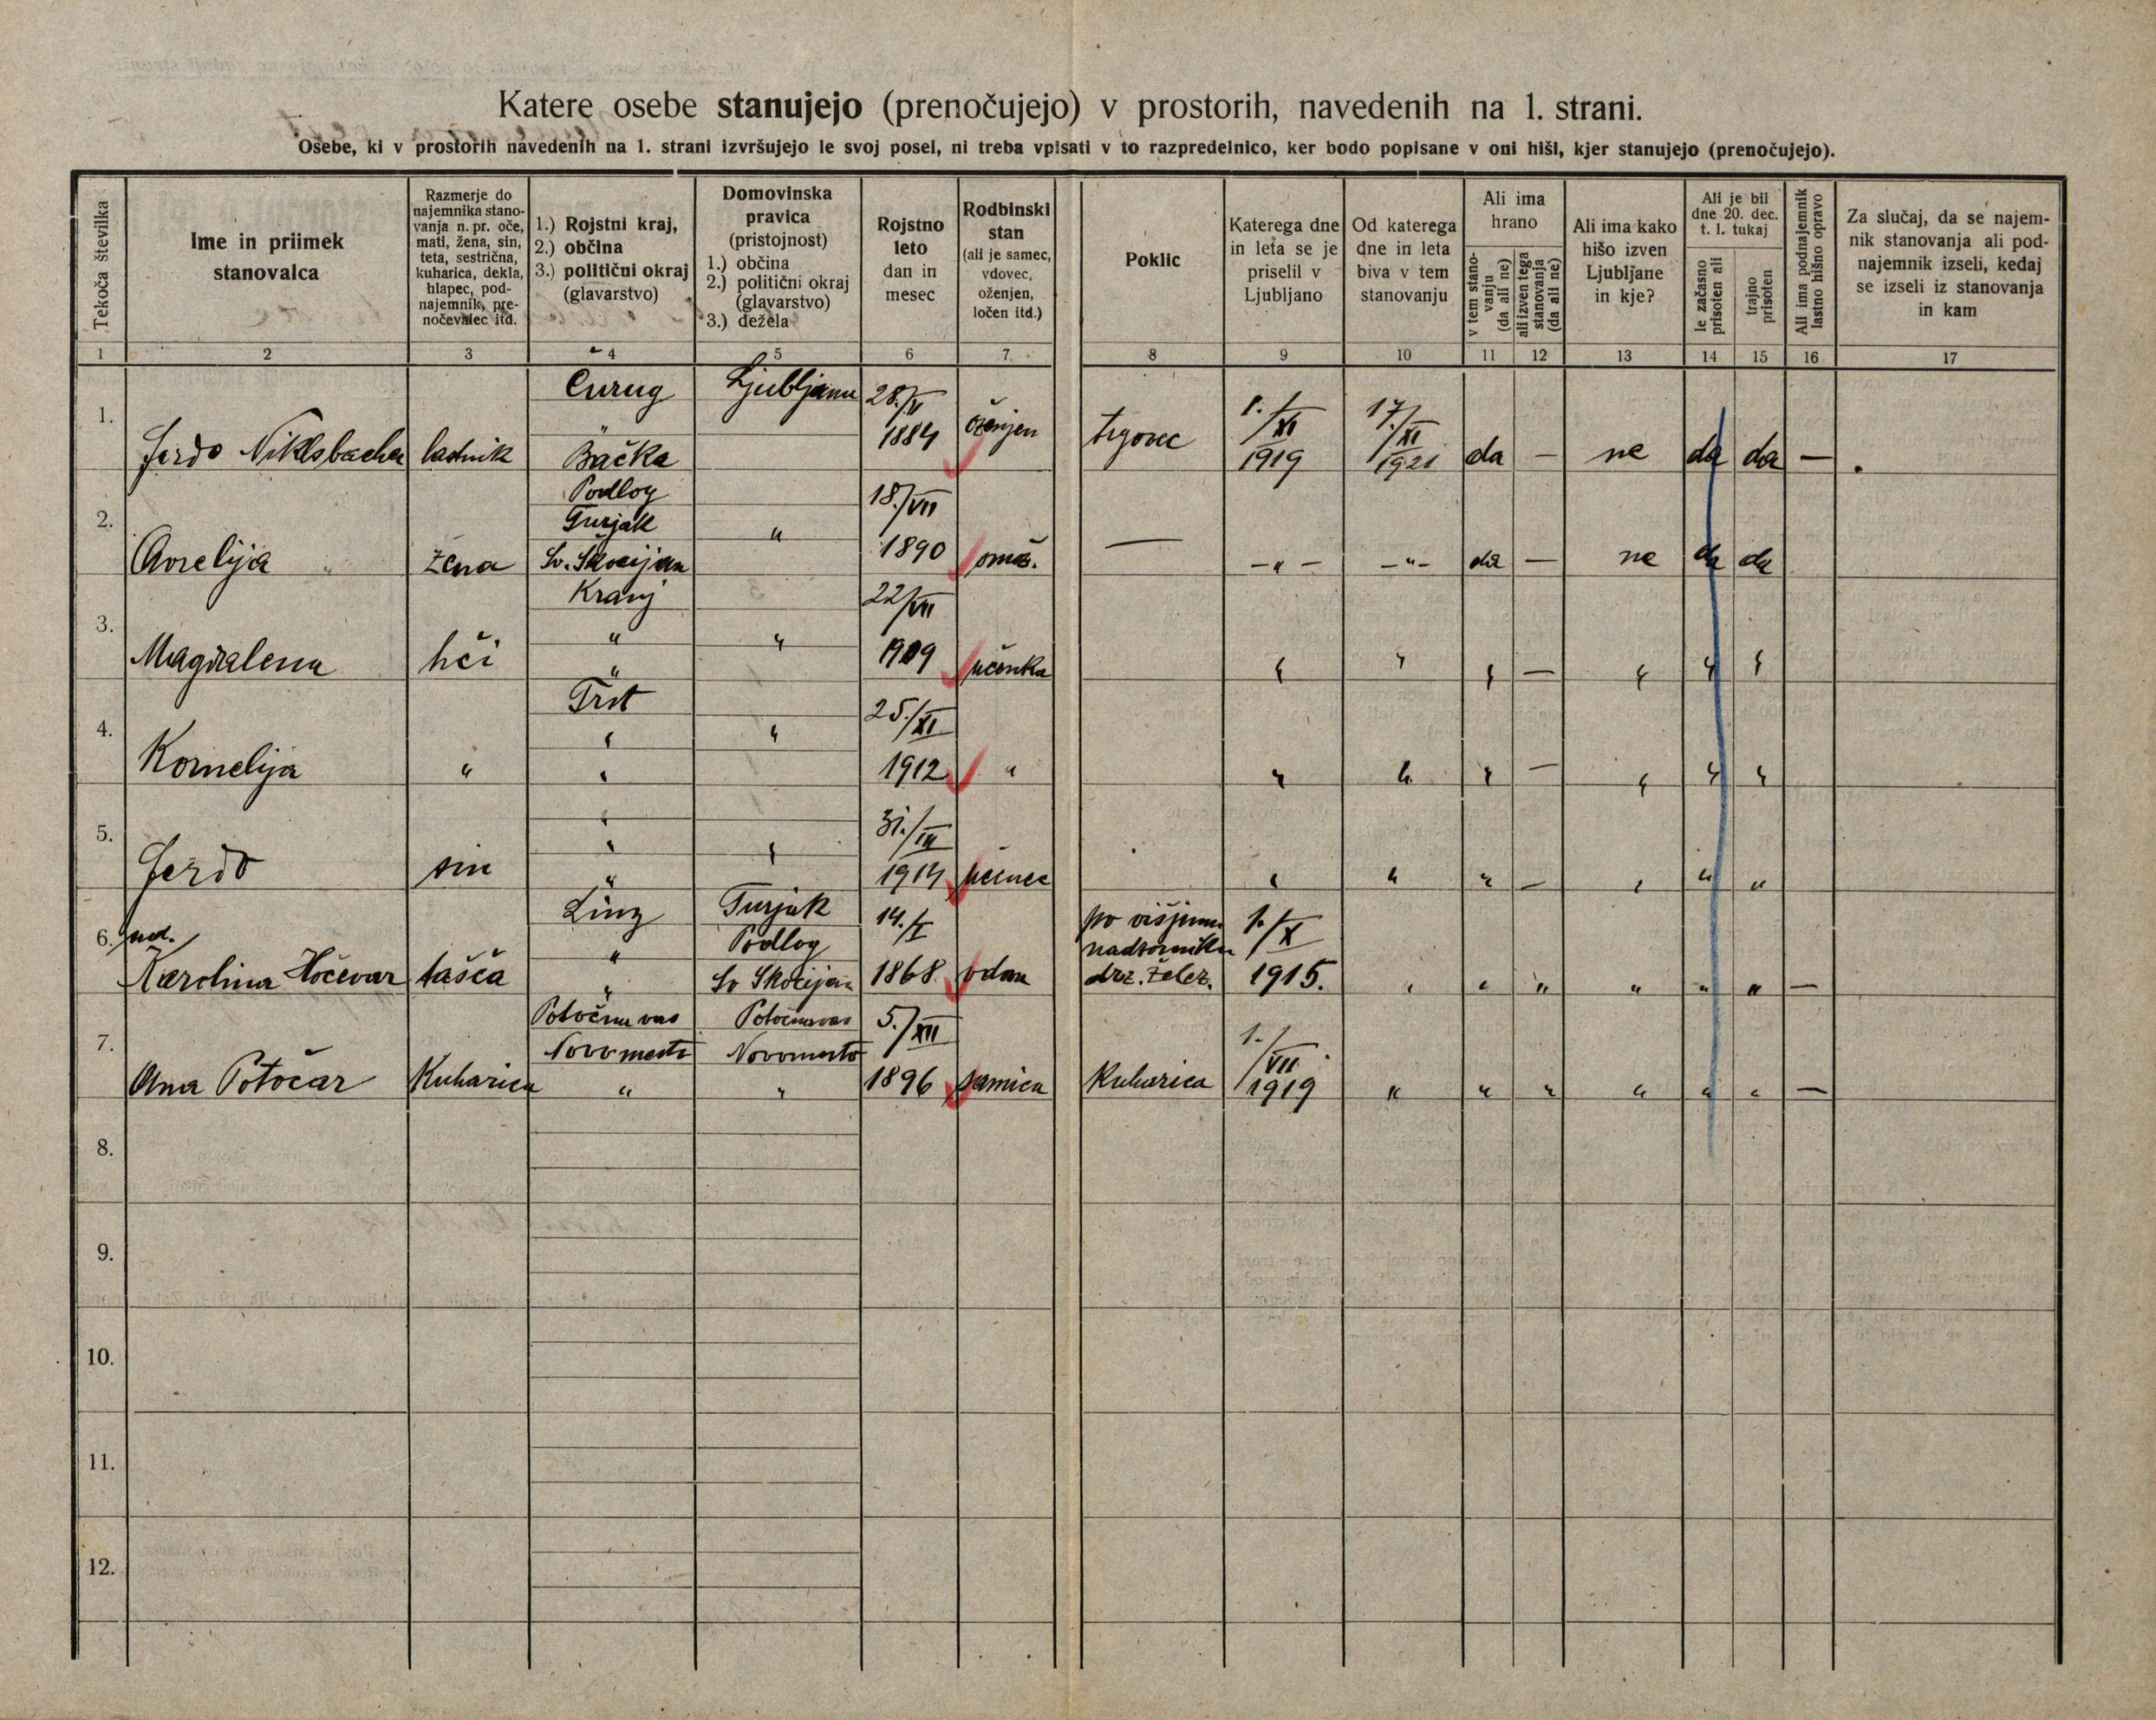 Katere osebe stanujejo (prenočujejo) v prostorih, navedenih na 1. strani.
Osebe, ki v prostorih navedenih na 1. strani izvršujejo le svoj posel, ni treba vpisati v to razpredelnico, ker bodo popisane v oni hiši, kjer stanujejo (prenočujejo).
Tekoča številka
Ime in priimek
stanovalca
Razmerje do
najemnika stano-
vanja n. pr. oče,
mati, žena, sin,
teta, sestrična,
kuharica, dekla,
hlapec, pod-
najemnik, pre-
nočevalec itd.
1.) Rojstni kraj,
2.) občina
3.) politični okraj
(glavarstvo)
Domovinska
pravica
(pristojnost)
1.) občina
2.) politični okraj
(glavarstvo)
3.) dežela
Rojstno
leto
dan in
mesec
Rodbinski
stan
(ali je samec,
vdovec,
oženjen,
ločen itd.)
Poklic
Katerega dne
in leta se je
priselil v
Ljubljano
Od katerega
dne in leta
biva v tem
stanovanju
Ali ima
hrano
v tem stano-
vanju
(da ali ne)
ali izven tega
stanovanja
(da ali ne)
Ali ima kako
hišo izven
Ljubljane
in kje?
Ali je bil
dne 20. dec.
t. l. tukaj
le začasno
prisoten ali
trajno
prisoten
Ali ima podnajemnik
lastno hišno opravo
Za slučaj, da se najem-
nik stanovanja ali pod-
najemnik izseli, kedaj
se izseli iz stanovanja
in kam
1 2 3 4 5 6 7 8 9 10 11 12 13 14 15 16 17
Čurug Ljubljana 28./II
1. " 1884 oženjen 1./XI 17./XI
Ferdo Niklsbacher lastnik Bačka trgovec 1919 1921 da — ne da da —
Podlog 18./VII
2. Turjak "
Amelija " žena Sv. Škocijan 1890 omož. — -"- -"- da — ne da da
Kranj 22/VII
3. " "
Magdalena hči " 1909 učenka " " " — " " "
Trst 25./XI
4. " "
Kornelija " " 1912 " " " " — " " "
" 31./III
5. " "
Ferdo sin " 1914 učenec " " " — " " "
Linz Turjak 14./I po višjemu 1./X
6. ud. " Podlog nadzorniku
Karolina Hočevar tašča " Sv Škocijan 1868 vdova drž. želez. 1915. " " " " " " —
Potočna vas Potočna vas 5./XII
7. Novo mesto Novomesto 1./VII
Ana Potočar Kuharica " " 1896 samica Kuharica 1919 " " " " " " —
8.
9.
10.
11.
12.